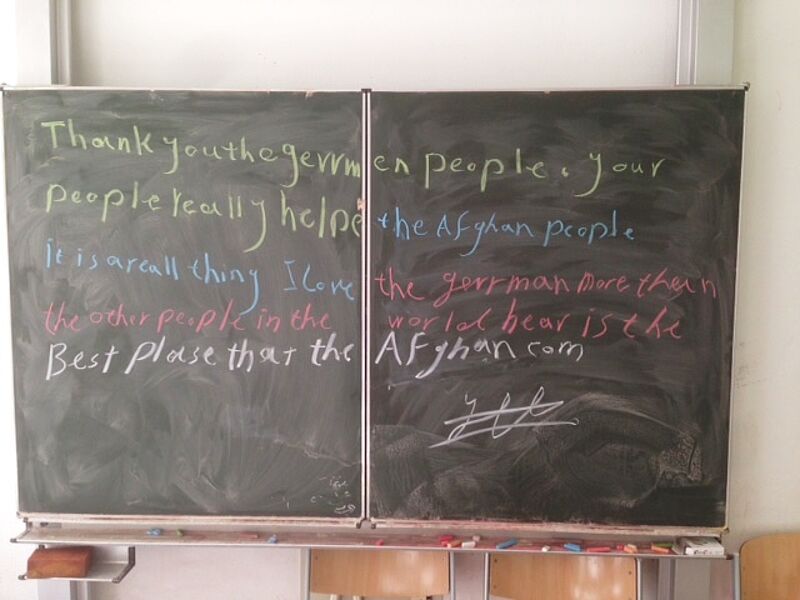 Thank you the gerrmen people. your
people really helpe the Afghan people
it is a reall thing I love the gerrman more then
the other people in the world hear is the
Best plase that the Afghan com